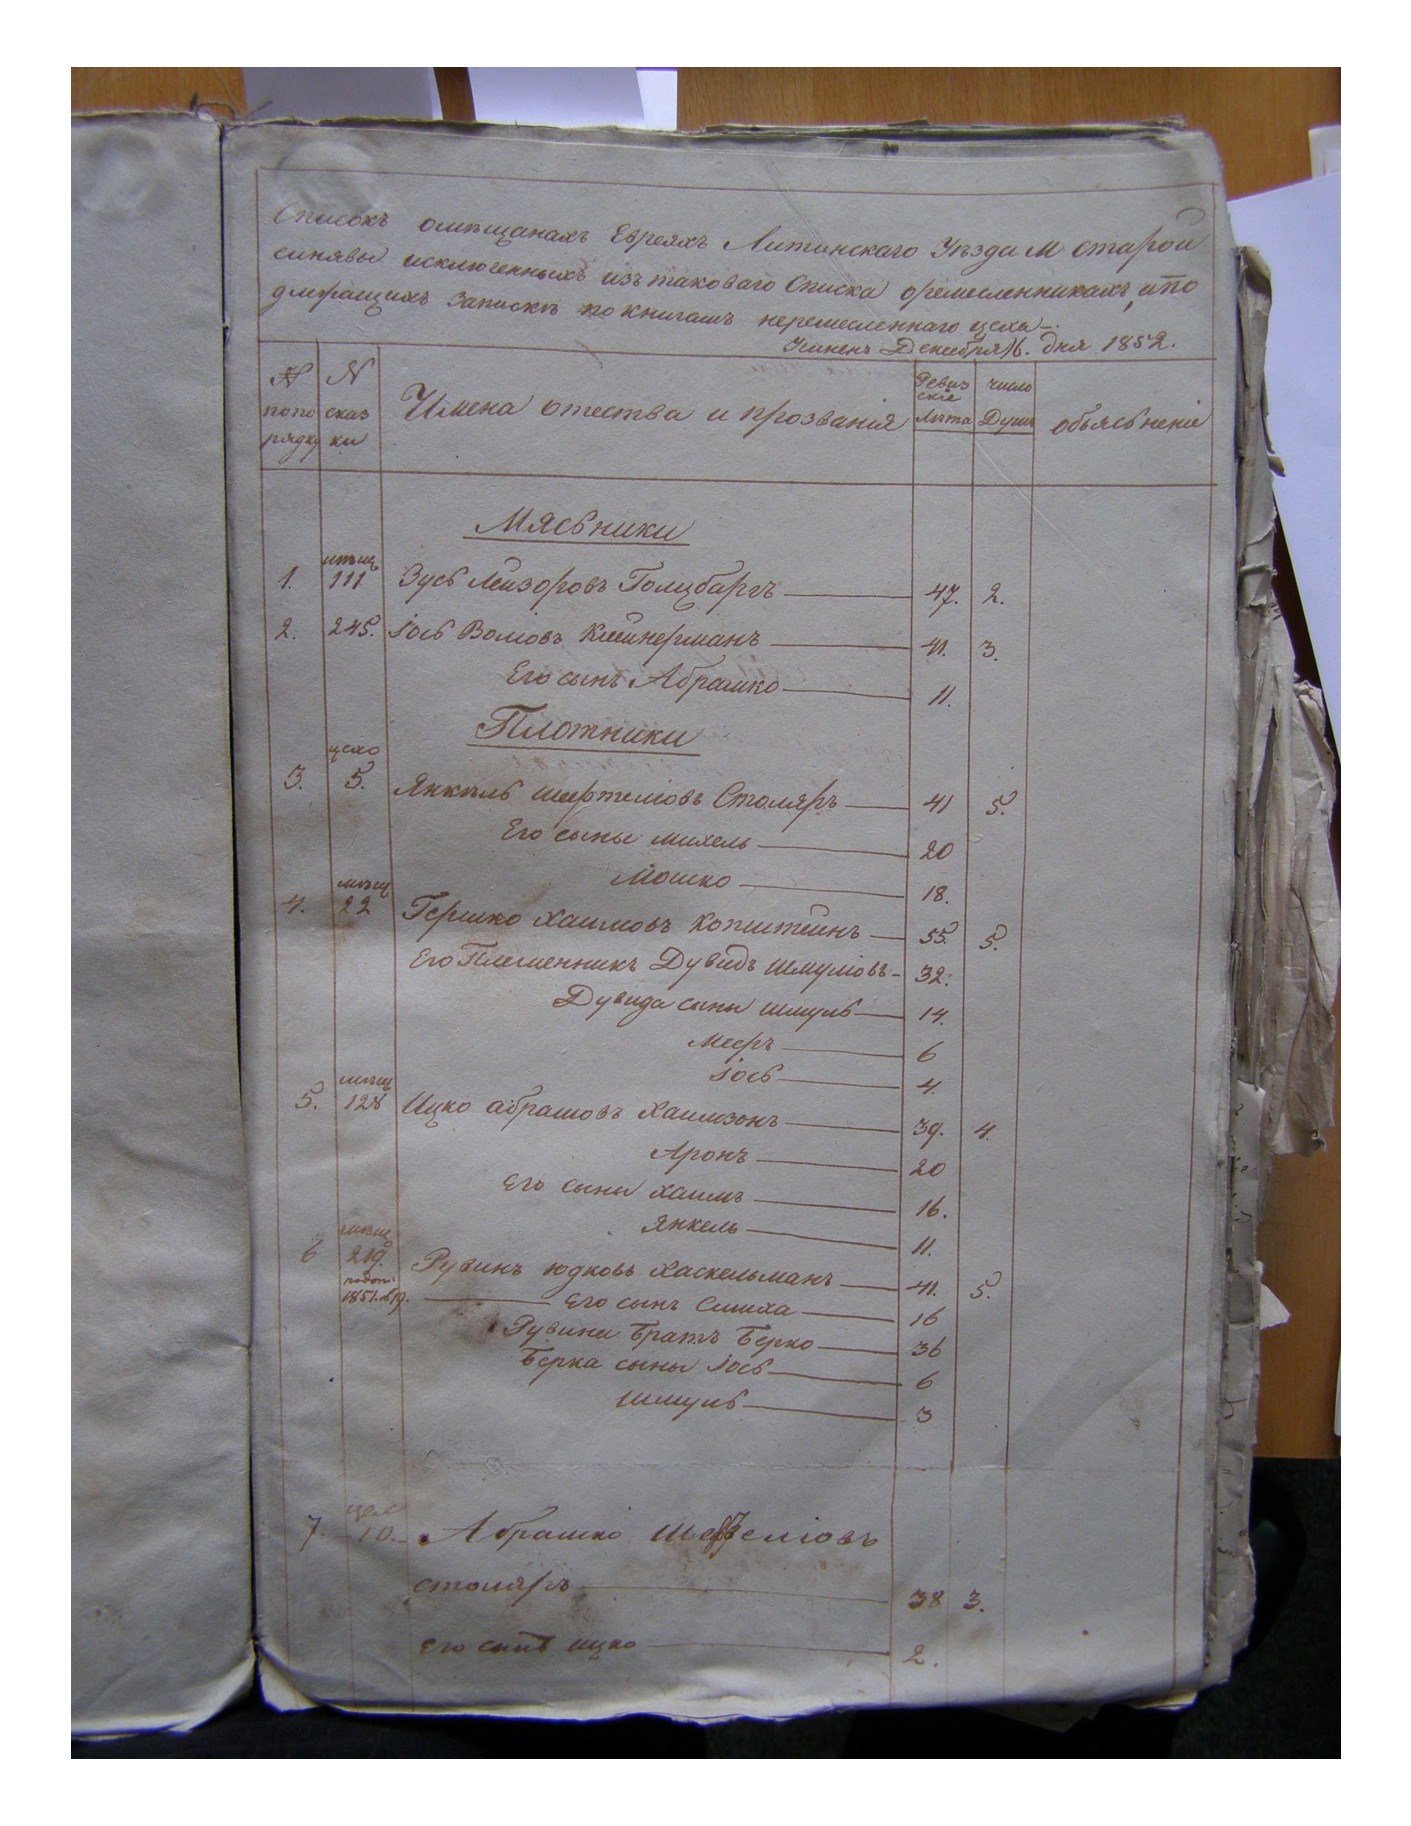 Списокъ омѣщанахъ Евреяхъ Литинскаго Уѣзда М Старой
синявы исключенныхъ изъ таковаго Списка оремесленникахъ, ипо
длежащихъ Записки по книгамъ неремесленнаго цеха
Декабря 16. дня 1852.
N N Имена отества и прозванія Ревиз число
скіе
попо сказ Лѣта Душъ объясьненіе
рядку ки
Мясьники
мѣщ
1. 111 Зусь Лейзоровъ Голцбаргъ 47. 2.
2. 245. Іось Волювъ Клейнерманъ 41. 3.
Его сынъ Абрашко 11.
Плотники
цехо
3. 5. Янкель Шефтеліовъ Столяръ 41 5.
Его сыны михель 20
Мошко 18.
мѣщ
4. 22 Гершко Хаимовъ Копштейнъ 55. 5.
Его Племенникъ Дувидъ Шмуліовъ 32.
Дувида сыны шмуль 14.
Мееръ 6
Іось 4.
мѣщ
5. 128 Ицко абрамовъ Хаимзонъ 39. 4.
Аронъ 20
Его сыны хаимъ 16.
Янкель 11.
мѣщ
6 219. Рувинъ юдковъ Хаскельманъ 41. 5.
1851. Его сынъ Симха 16
Рувина братъ Берко 36
Берка сыны Іось 6
Шмуль 3
цех
7. 10. Абрашко Шефтеліовъ
столяръ 38 3.
Его сынъ ицко 2.